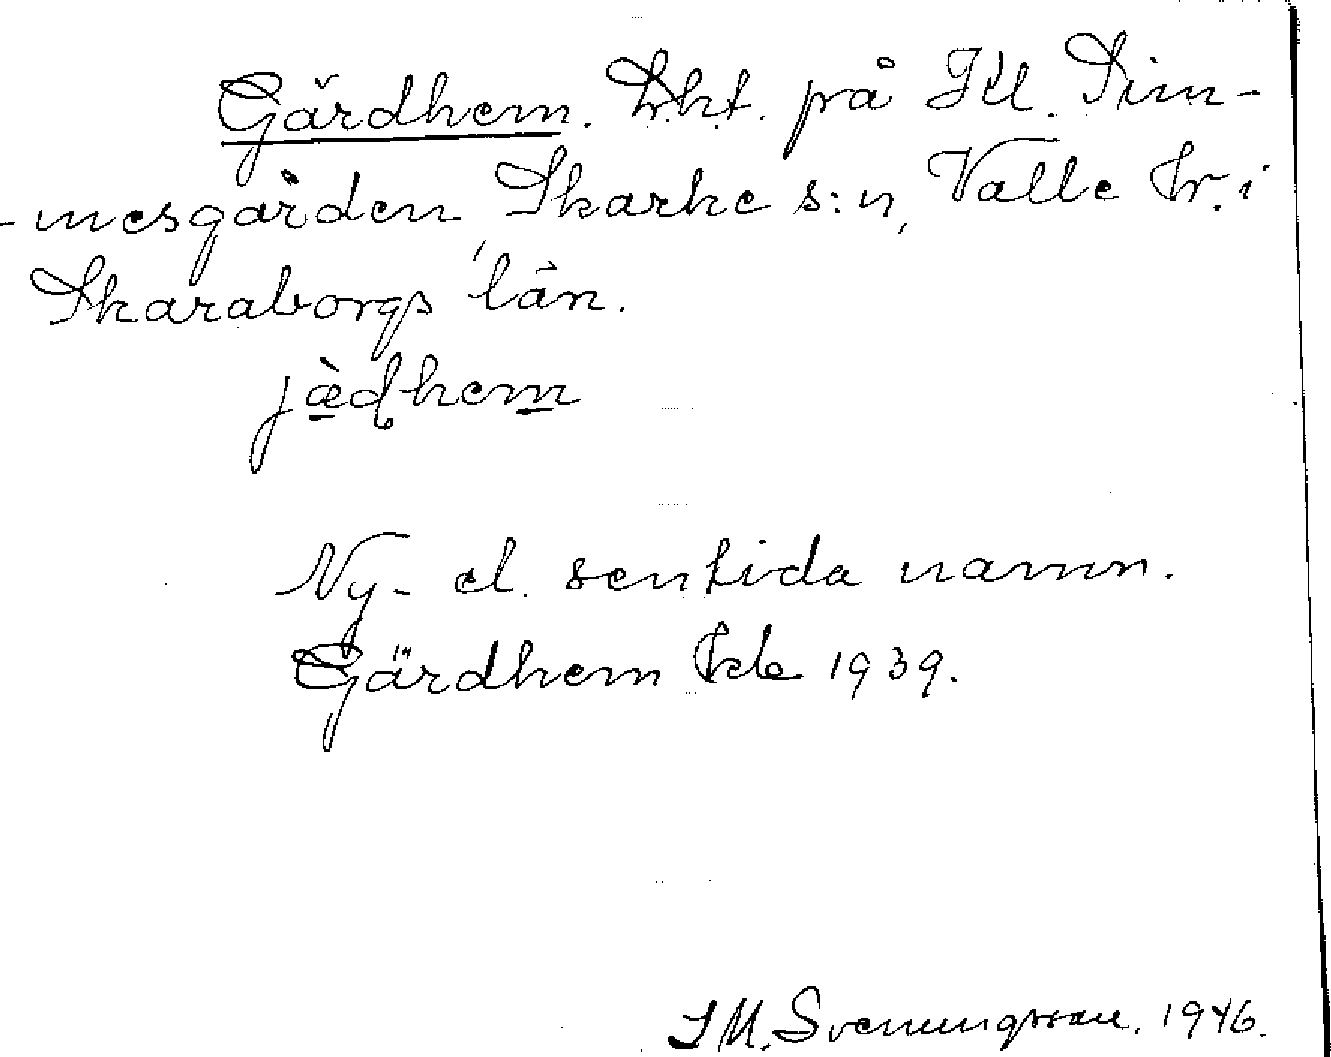 Gärdhem. Lht. på Kl. Dim-
-mesgården, Skarke s:n, Valle hr. i
Skaraborgs län.
jæ̀dhem
Ny- el. sentida namn.
Gärdhem 1939.
Svenungsson. 1946.